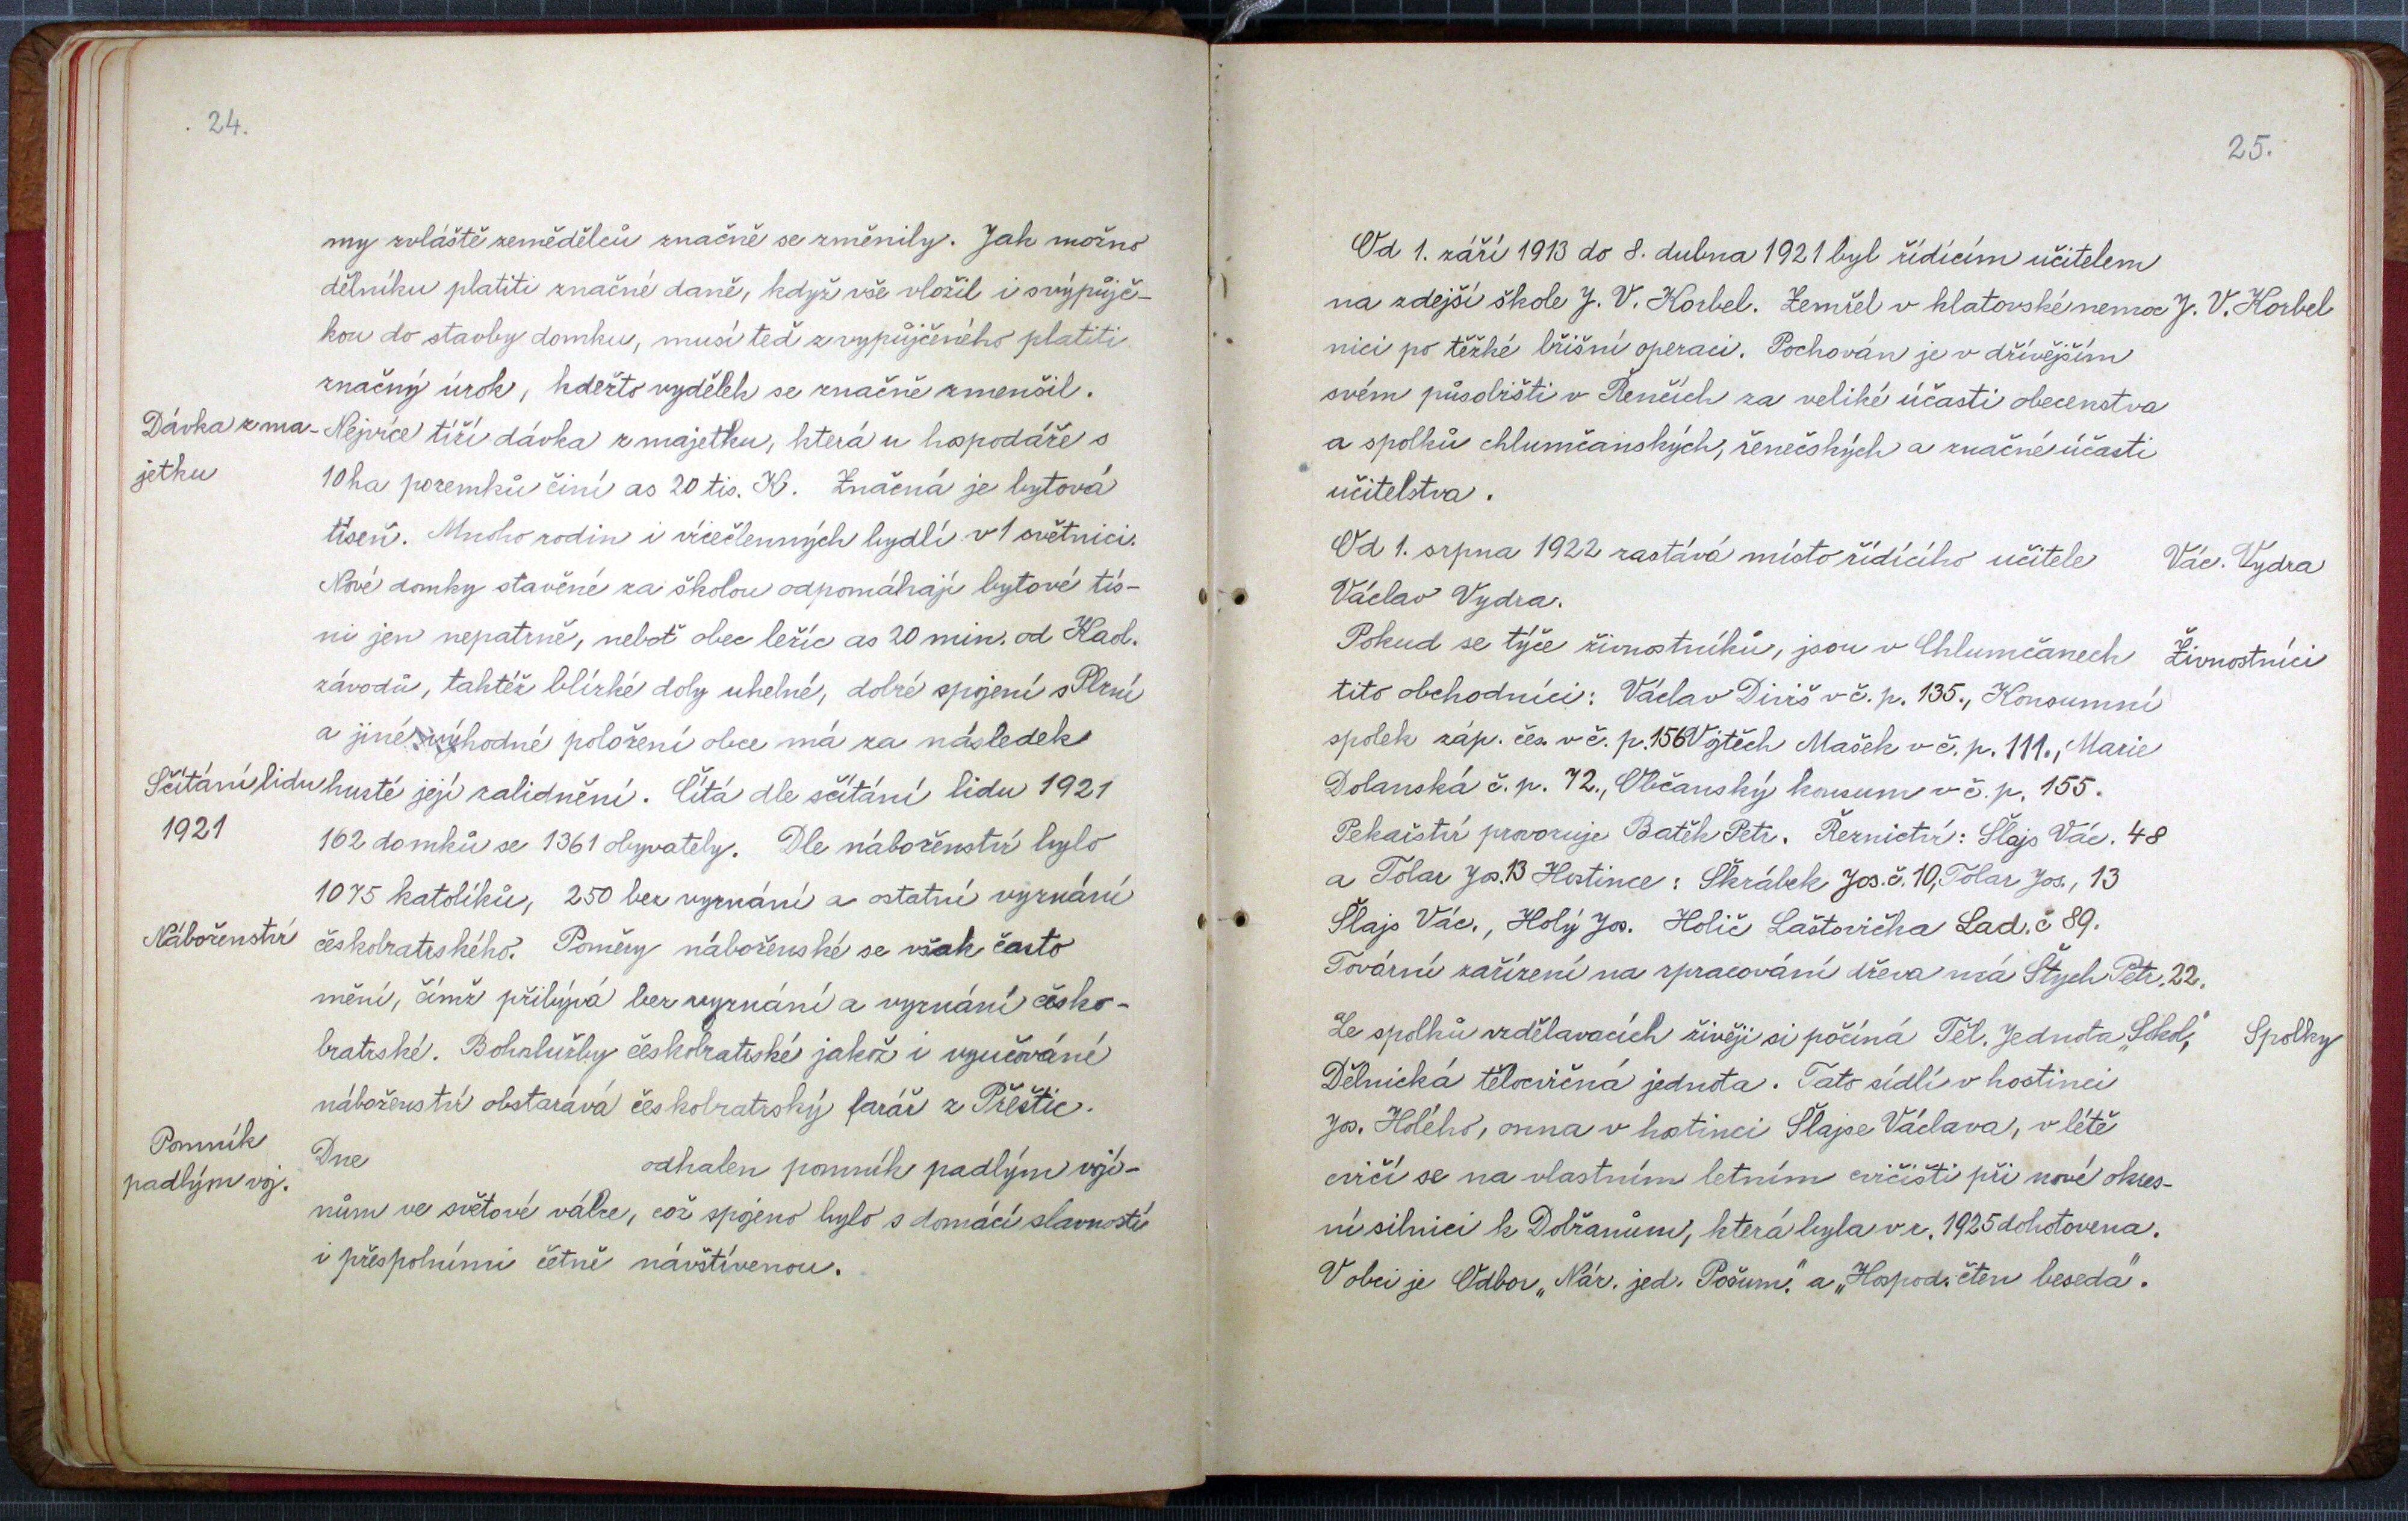 24.
my zvláště zemědělců značně se změnily. Jak možno
dělníku platiti značné daně, když vše vložil i svýpůjč-
kou do stavby domku, musí teď z vypůjčeného platiti
značný úrok, kdežto výdělek se značně zmenšil.
Dávka z ma-
jetku
Nejvíce tíží dávka z majetku, která u hospodáře s
10 ha pozemků činí as 20 tis. K. Značná je bytová
tíseň. Mnoho rodin i vícečlenných bydlí v 1 světnici.
Nové domky stavěné za školou odpomáhají bytové tís-
ni jen nepatrně, neboť obec ležíc as 20 min. od Kaol.
závodů, taktéž blízké doly uhelné, dobré spojení s Plzní
a jiné výhodné položení obce má za následek
Sčítání lidu
1921
husté její zalidnění. Čítá dle sčítání lidu 1921
162 domků se 1361 obyvately. Dle náboženství bylo
1075 katolíků, 250 bez vyznání a ostatní vyznání
Náboženství
českobratrského. Poměry náboženské se však často
mění, čímž přibývá bez vyznání a vyznání česko-
bratrské. Bohoslužby českobratrské jakož i vyučování
náboženství obstarává českobratrský farář z Přeštic.
Pomník
padlým voj.
Dne odhalen pomník padlým vojí-
nům ve světové válce, což spojeno bylo s domácí slavností
i přespolními četně návštívenou.
25.
Od 1. září 1913 do 8. dubna 1921 byl řídícím učitelem
na zdejší škole J. V. Korbel. Zemřel v klatovské nemoc
J. V. Korbel
nici po těžké břišní operaci. Pochován je v dřívějším
svém působišti v Řenčích za veliké účasti obecenstva
a spolků chlumčanských, řenečských a značné účasti
učitelstva.
Od 1. srpna 1922 zastává místo řídícího učitele
Vác. Vydra
Václav Vydra.
Pokud se týče živnostníků, jsou v Chlumčanech
Živnostníci
tito obchodníci: Václav Diviš v č. p. 135., Konsumní
spolek záp. čes. v č. p. 156 Vojtěch Mašek v č. p. 111., Marie
Dolanská č. p. 72., Občanský konsum v č. p. 155.
Pekařství provozuje Batěk Petr. Řeznictví: Šlajs Vác. 48
a Tolar Jos. 13 Hostince: Škrábek Jos. č. 10, Tolar Jos., 13
Šlajs Vác., Holý Jos. Holič Laštovička Lad. č 89.
Tovární zařízení na zpracování dřeva má Štych Petr. 22.
Ze spolků vzdělavacích živěji si počíná Těl. Jednota „Sokol,"
Spolky
Dělnická tělocvičná jednota. Tato sídlí v hostinci
Jos. Holého, onna v hostinci Šlajse Václava, v létě
cvičí se na vlastním letním cvičišti při nové okres-
ní silnici k Dobřanům, která byla v r. 1925 dohotovena.
V obci je Odbor „Nár. jed. Pošum." a „Hospod. čten beseda".